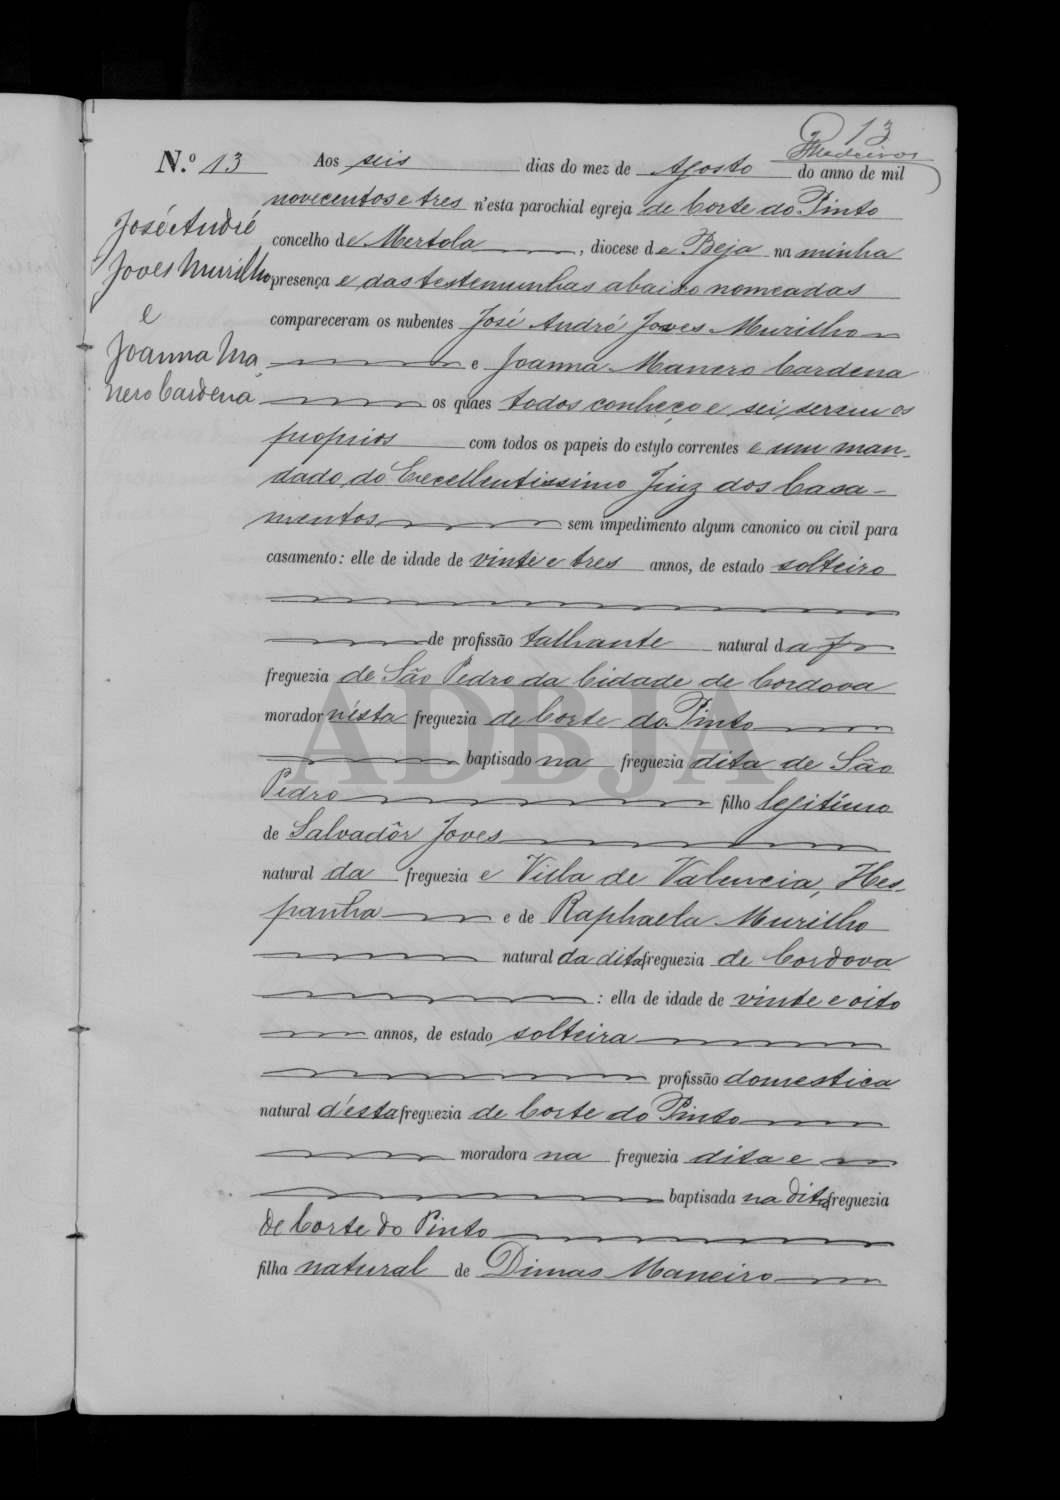 13
Medeiros
N.º 13 Aos seis dias do mez de Agosto do anno de mil
novecentos e tres n'esta parochial egreja de Corte do Pinto
José André
concelho de Mertola, diocese de Beja na minha
Joves Murilho
presença e das testemunhas abaixo nomeadas
e
compareceram os nubentes José André Joves Murilho
Joanna Ma
e Joanna Manero Cardena
nero Cardena
os quaes todos conheço e sei serem os
proprios com todos os papeis do estylo correntes e um man-
dado do Excellentissimo Juiz dos Casa-
mentos sem impedimento algum canonico ou civil para
casamento: elle de idade de vinte e tres annos, de estado solteiro
de profissão talhante natural da
freguezia de São Pedro da Cidade de Cordova
morador n'esta freguezia de Corte do Pinto
baptisado na freguezia dita de São
Pedro filho legitimo
de Salvadôr Joves
natural da freguezia e Villa de Valencia, Hes-
panha e de Raphaela Murilho
natural da dita freguezia de Cordova
: ella de idade de vinte e oito
annos, de estado solteira
profissão domestica
natural d'esta freguezia de Corte do Pinto
moradora na freguezia dita e
baptisada na dita freguezia
de Corte do Pinto
filha natural de Dimas Maneiro
ADBJA